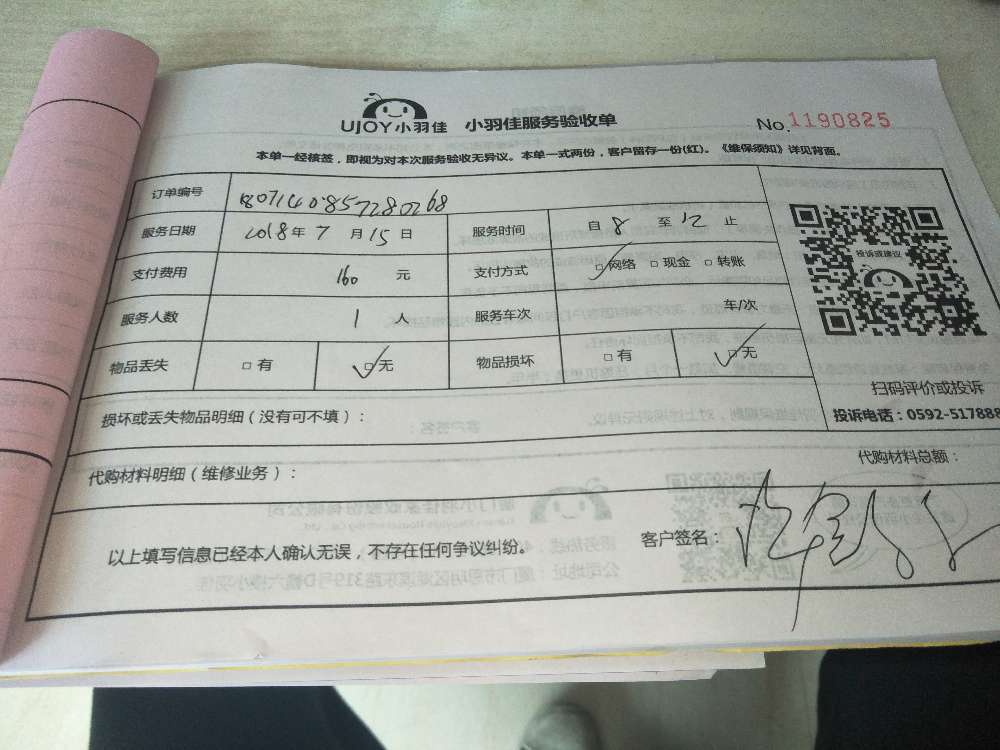 UJOY小羽佳 小羽佳服务验收单 No.1190825
本单一经核签，即视为对本次服务验收无异议。本单一式两份，客户留存一份(红)。《维保须知》详见背面。
订单编号
服务日期 2018年7月15日 服务时间 自8至12止
支付费用 160元 支付方式 □网络 □现金 □转账
服务人数 1人 服务车次 车/次
物品丢失 □有 □无 物品损坏 □有 □无
投诉或建议
扫码评价或投诉
投诉电话：0592-517888
损坏或丢失物品明细（没有可不填）：
代购材料明细（维修业务）： 代购材料总额：
以上填写信息已经本人确认无误，不存在任何争议纠纷。 客户签名：